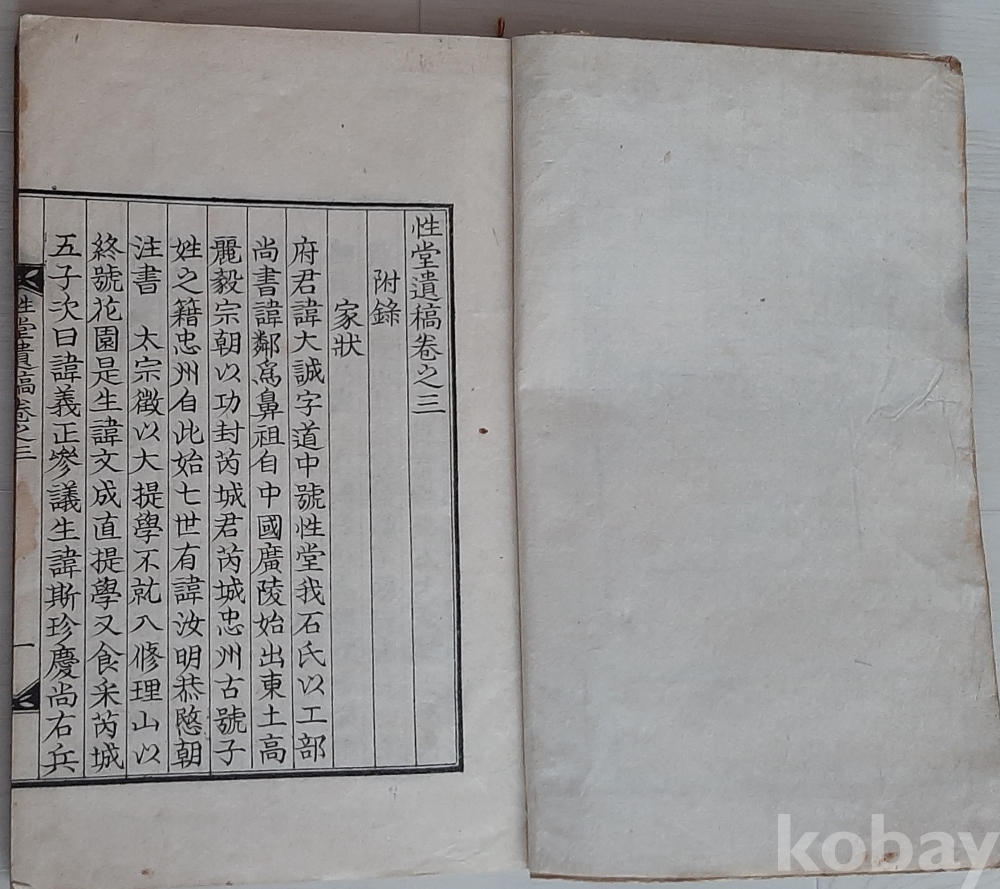 性堂遺稿卷之三
附錄
家狀
府君諱大誠字道中號性堂我石氏以工部
尚書諱鄰爲鼻祖自中國廣陵始出東土高
麗毅宗朝以功封芮城君芮城忠州古號子
姓之籍忠州自此始七世有諱汝明恭愍朝
注書　太宗徵以大提學不就入修理山以
終號花園是生諱文成直提學又食采芮城
五子次曰諱義正參議生諱斯珍慶尚右兵
性堂遺稿卷之三
一
kobay